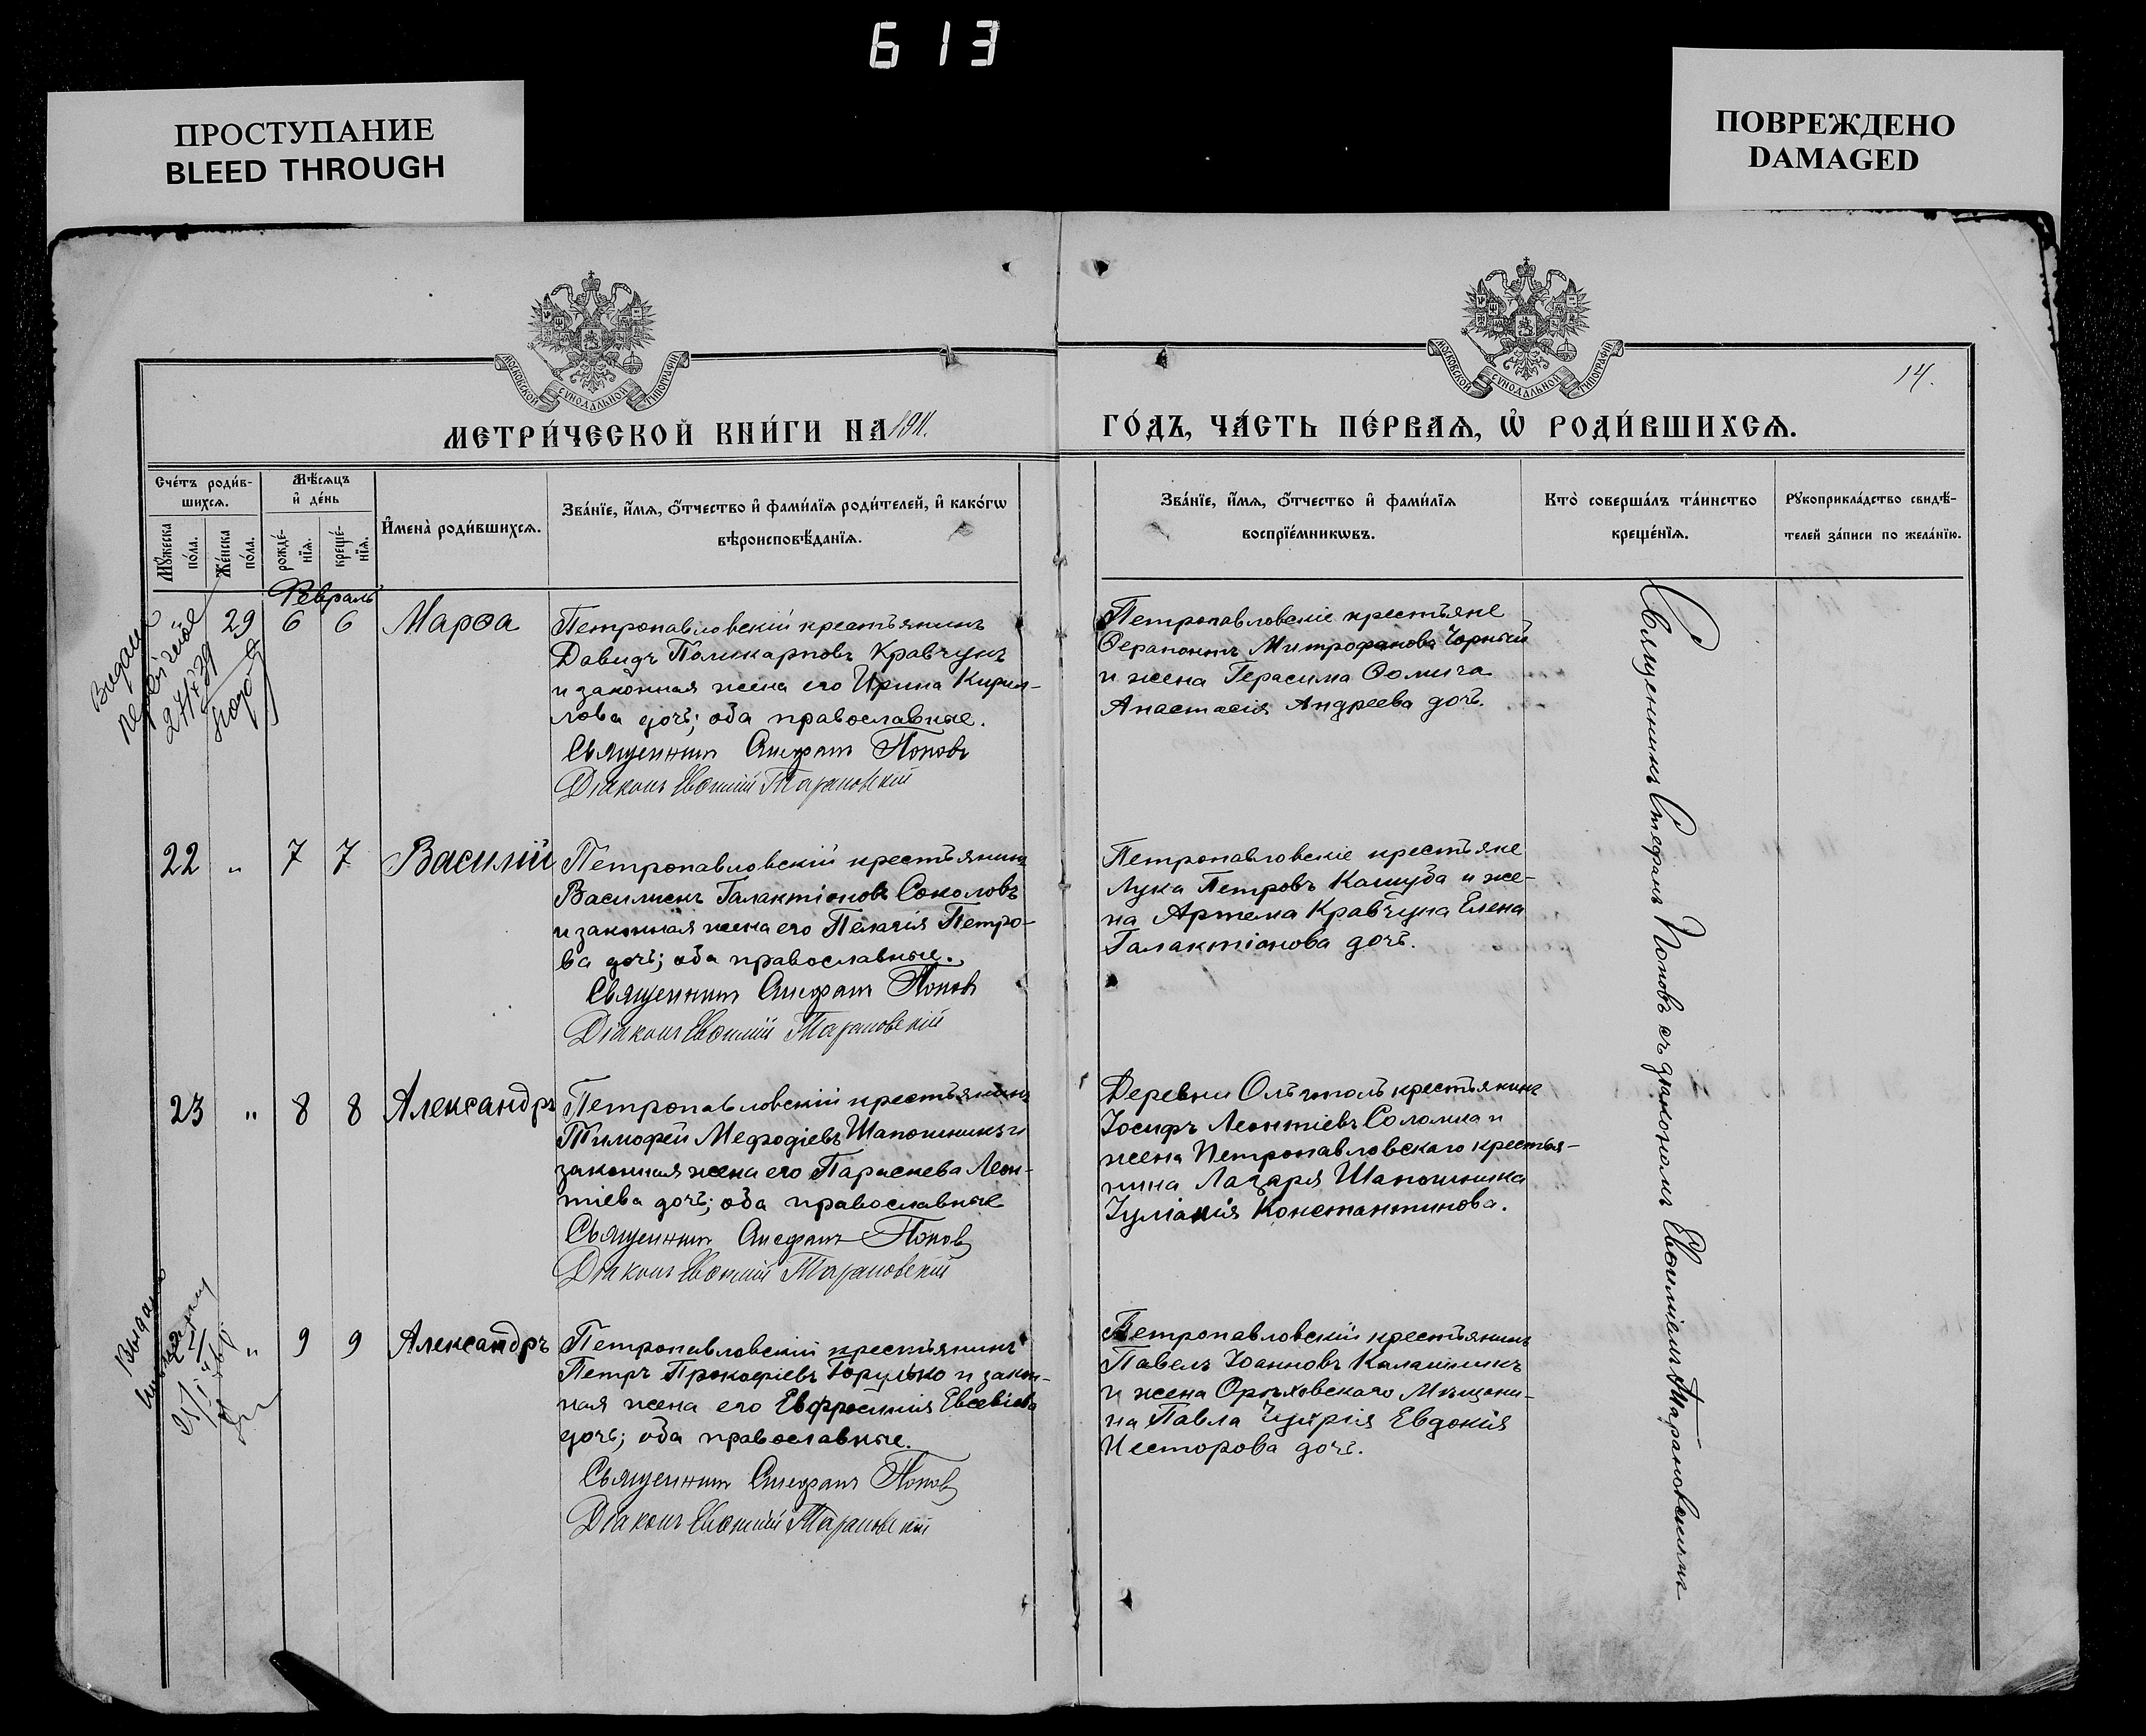 613
ПРОСТУПАНИЕ
BLEED THROUGH
ПОВРЕЖДЕНО
DAMAGED
МОСКОВСКОЙ СУНОДАЛЬНОЙ ТИПОГРАФІИ
МОСКОВСКОЙ СУНОДАЛЬНОЙ ТИПОГРАФІИ
14.
МЕТРИ́ЧЕСКОЙ КНИ́ГИ НА 1911.
ГО́ДЪ, ЧА́СТЬ ПЕ́РВАѦ, Ѡ҆ РОДИ́ВШИХСѦ.
Сче́тъ роди́в-
шихсѧ.
Мꙋ́жеска по́ла.
Же́нска по́ла.
Мѣ́сѧцъ
и҆ де́нь
рожде́-
нїѧ.
креще́-
нїѧ.
И҆мена̀ роди́вшихсѧ.
Зва́нїе, и҆́мѧ, ѻ҆́тчество и҆ фами́лїѧ роди́телей, и҆ како́гѡ
вѣроисповѣ́данїѧ.
Зва́нїе, и҆́мѧ, ѻ҆́тчество и҆ фами́лїѧ
воспрїе́мникѡвъ.
Кто̀ соверша́лъ та́инство
креще́нїѧ.
Рꙋкоприкла́дство свидѣ́-
телей за́писи по жела́нїю.
Февраль
" 29 6 6 Марѳа
Петропавловскій крестьянинъ
Давидъ Поликарповъ Кравчунъ
и законная жена его Ирина Кирил-
лова дочь; оба православные.
Священникъ Стефанъ Поповъ
Діаконъ Евѳимій Тарановскій
Петропавловскіе крестьяне
Ѳерапонтъ Митрофановъ Чорный
и жена Герасима Ѳомича
Анастасія Андреева дочь.
22 " 7 7 Василій
Петропавловскій крестьянинъ
Василискъ Галактіоновъ Соколовъ
и законная жена его Пелагія Петро-
ва дочь; оба православные.
Священникъ Стефанъ Поповъ
Діаконъ Евѳимій Тарановскій
Петропавловскіе крестьяне
Лука Петровъ Кашуба и же-
на Артема Кравчуна Елена
Галактіонова дочь.
23 " 8 8 Александръ
Петропавловскій крестьянинъ
Тимофей Мефодіевъ Шапошникъ и
законная жена его Параскева Леон-
тіева дочь; оба православные
Священникъ Стефанъ Поповъ
Діаконъ Евѳимій Тарановскій
Деревни Ольгополь крестьянинъ
Іосифъ Леонтіевъ Соломка и
жена Петропавловскаго крестья-
нина Лазаря Шапошника
Іуліанія Константинова.
" 9 9 Александръ
Петропавловскій крестьянинъ
Петръ Прокофіевъ Горулько и закон-
ная жена его Евфросинія Евсевіева
дочь; оба православные.
Священникъ Стефанъ Поповъ
Діаконъ Евѳимій Тарановскій
Петропавловскій крестьянинъ
Павелъ Іоанновъ Калашникъ
и жена Орѣховскаго Мѣщани-
на Павла Евдокія
Несторова дочь.
Священникъ Стефанъ Поповъ съ діакономъ Евѳиміемъ Тарановскимъ